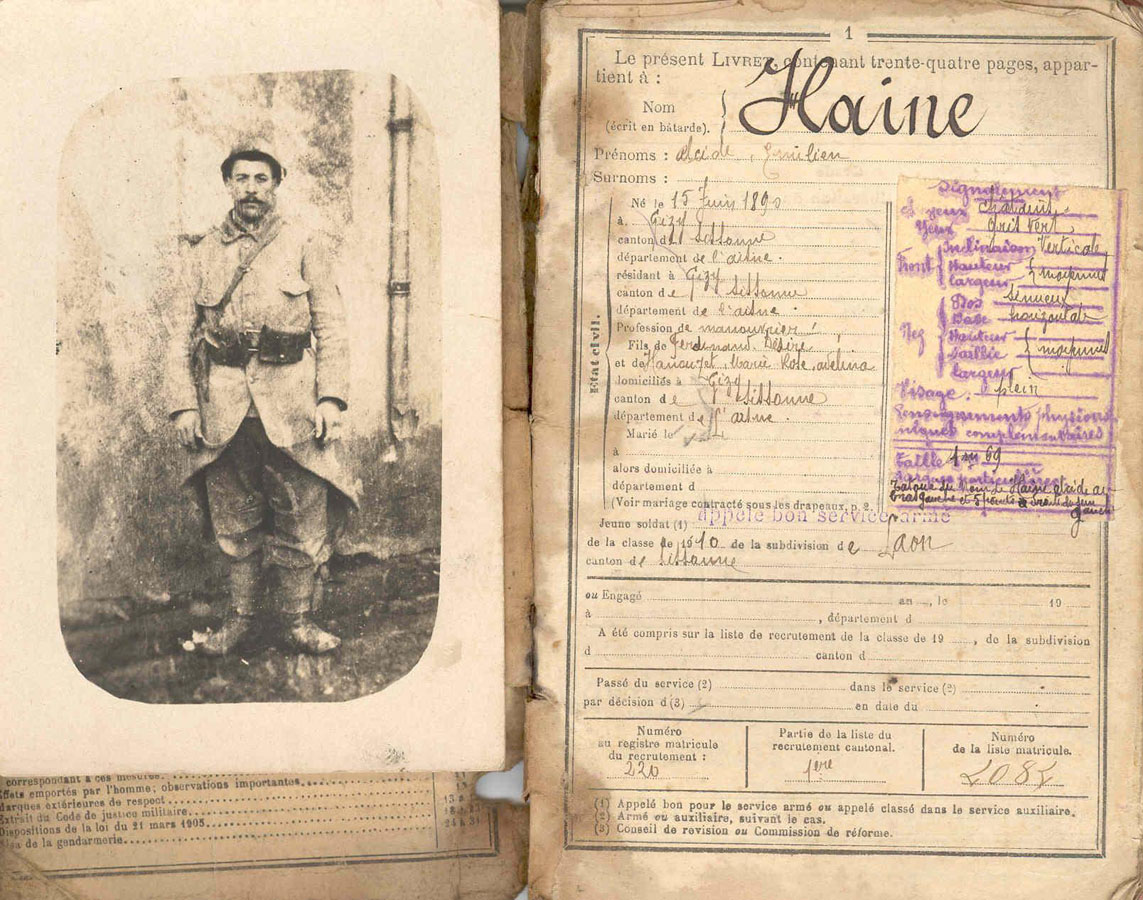 correspondant à ces mesures.
Effets emportés par l'homme; observations importantes.
Marques extérieures de respect
Extrait du Code de justice militaire
Dispositions de la loi du 21 mars 1905
de la gendarmerie
1
Le présent LIVRET, contenant trente-quatre pages, appar-
tient à :
Nom
(écrit en bâtarde).
Haine
Prénoms : alcide, Emilien
Surnoms :
Etat civil.
Né le 15 Juin 1890
à Gizy
canton de Sissonne
département de l'aisne.
résidant à Gizy
canton de Sissonne
département de l'aisne.
Profession de manouvrier
Fils de Ferdinand Désiré
et de Marie Rose
domiciliés à Gizy
canton de Sissonne
département de l'aisne.
Marié le
à
alors domiciliée à
département d
(Voir mariage contracté sous les drapeaux, p. 2.
Signalement
yeux gris vert
Front
Inclinaison Verticale
Hauteur
largeur
moyennes
Nez
Dos sinueux
Base horizontale
Hauteur
Saillie
largeur
moyennes
Visage. plein
Renseignements physiono
miques complémentaires
Taille 1m 69
Marques particulières
appelé bon service armé
Jeune soldat (1)
de la classe de 1910 de la subdivision de Laon
canton de Sissonne
ou Engagé an , le 19
à , département d
A été compris sur la liste de recrutement de la classe de 19 , de la subdivision
d canton d
Passé du service (2) dans le service (2)
par décision d (3) en date du
Numéro
au registre matricule
du recrutement :
220
Partie de la liste du
recrutement cantonal.
1ère
Numéro
de la liste matricule.
(1) Appelé bon pour le service armé ou appelé classé dans le service auxiliaire.
(2) Armé ou auxiliaire, suivant le cas.
(3) Conseil de revision ou Commission de réforme.